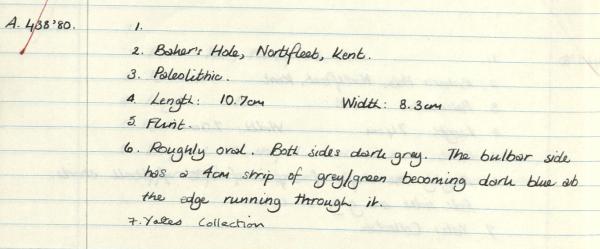 A. 438'80.
1.
2. Baker's Hole, Northfleet, Kent.
3. Paleolithic.
4. Length: 10.7cm Width: 8.3cm
5. Flint.
6. Roughly oval. Both sides dark grey. The bulbar side
has a 4cm strip of grey/green becoming dark blue at
the edge running through it.
7. Yates Collection